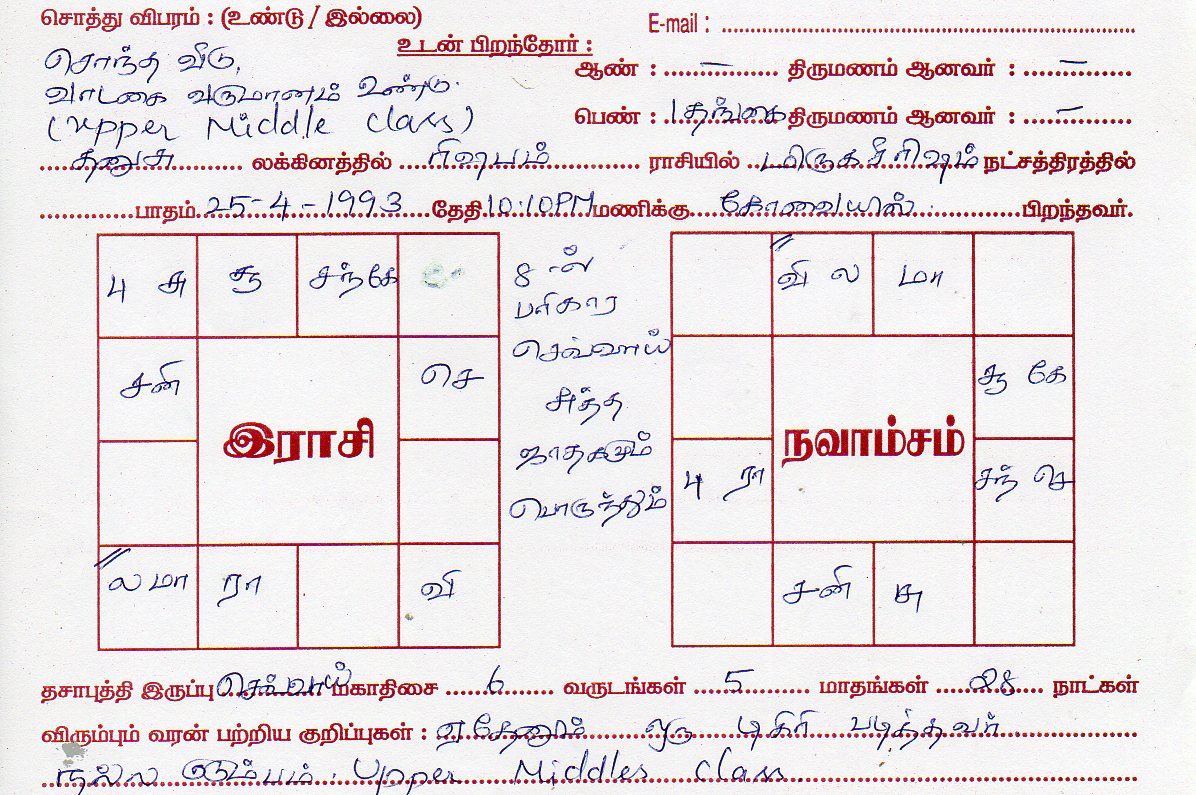 சொத்து விபரம் : (உண்டு / இல்லை)
E-mail : ..........
சொந்த வீடு,
வாடகை வருமானம் உண்டு.
(Upper Middle class)
உடன் பிறந்தோர் :
ஆண் : — திருமணம் ஆனவர் : —
பெண் : 1 தங்கை திருமணம் ஆனவர் : —
தனுசு லக்கினத்தில் ரிஷபம் ராசியில் மிருகசீரிஷம் நட்சத்திரத்தில்
.......... பாதம் 25-4-1993 தேதி 10:10PM மணிக்கு கோவையில் பிறந்தவர்.
பு சு சூ சந்கே
சனி செ
இராசி
லமா ரா வி
8-ல்
பரிகார
செவ்வாய்
சுத்த
ஜாதகமும்
பொருந்தும்
வி ல மா
சூ கே
நவாம்சம்
பு ரா சந் செ
சனி சு
தசாபுத்தி இருப்பு செவ்வாய் மகாதிசை 6 வருடங்கள் 5 மாதங்கள் 28 நாட்கள்
விரும்பும் வரன் பற்றிய குறிப்புகள் : ஏதேனும் ஒரு டிகிரி படித்தவர்
நல்ல Upper Middles class